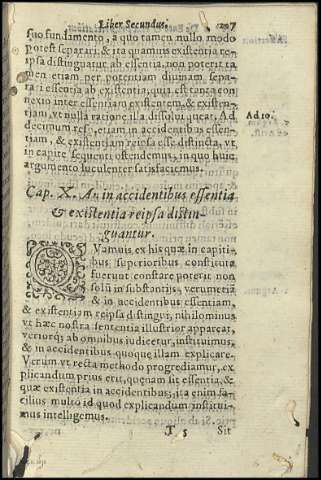 Liber Secundus. 297
suo fundamento, a quo tamen nullo modo
potest separari: & ita quamuis existẽtia re-
ipsa distinguatur ab essentia, non poterit ta
men etiam per potentiam diuinam sepa-
rari essentia ab existentia, quia est tanta con
nexio inter essentiam existentem, & existen-
tiam, vt nulla ratione illa dissolui queat. Ad
decimum resp. etiam in accidentibus essen-
tiam, & existentiam reipsa esse distincta, vt
in capite sequenti ostendemus, in quo huic
argumento luculenter satisfaciemus.
Ad 10.
Cap. X. An in accidentibus essentia
& existentia reipsa distin-
guantur.
QVamuis ex his quæ in capiti-
bus superioribus constituta
fuerunt constare poterit non
solũ in substantijs, verumetiã
& in accidentibus essentiam,
& existentiam reipsa distingui; nihilominus
vt hæc nostra sententia illustrior appareat,
veriorq; ab omnibus iudicetur, instituimus,
& in accidentibus quoque illam explicare.
Verum vt recta methodo progrediamur, ex
plicandum prius erit, quænam sit essentia, &
quæ existentia in accidentibus; ita enim fa-
cilius multò id quod explicandum institui-
mus intelligemus.
T 5 Sit